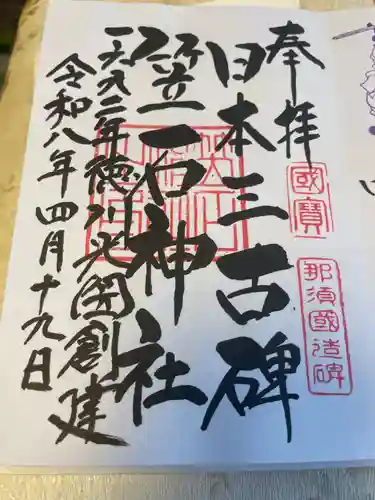 奉拝
國寶
那須國造碑
日本三古碑
笠石神社
一六九二年徳川光圀創建
令和八年四月十九日